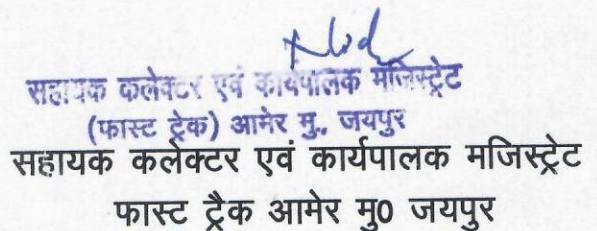 सहायक कलेक्टर एवं कार्यपालक मजिस्ट्रेट
(फास्ट ट्रेक) आमेर मु., जयपुर
सहायक कलेक्टर एवं कार्यपालक मजिस्ट्रेट
फास्ट ट्रैक आमेर मु0 जयपुर